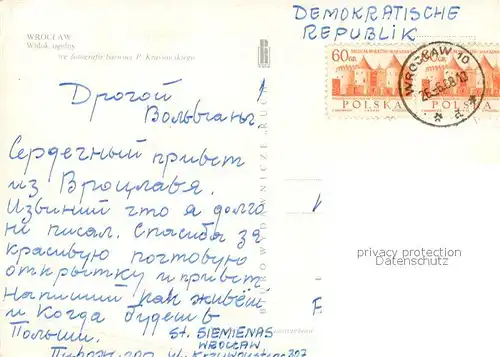 WROCŁAW
Widok ogólny
DEMOKRATISCHE
REPUBLIK
60 GR
60 GR
POLSKA
POLSKA
WROCŁAW 10
Дрогой
Вольфганг
Сердечный привет
из Вроцлавя.
Извиний что я долго
не писал. Спасиба за
красивую почтовую
открытку и привет.
Напиший как живёш
и когда будеш в
Польши.
St. SIEMIENAS
WROCŁAW
BIURO WYDAWNICZE „RUCH"
privacy protection
Datenschutz